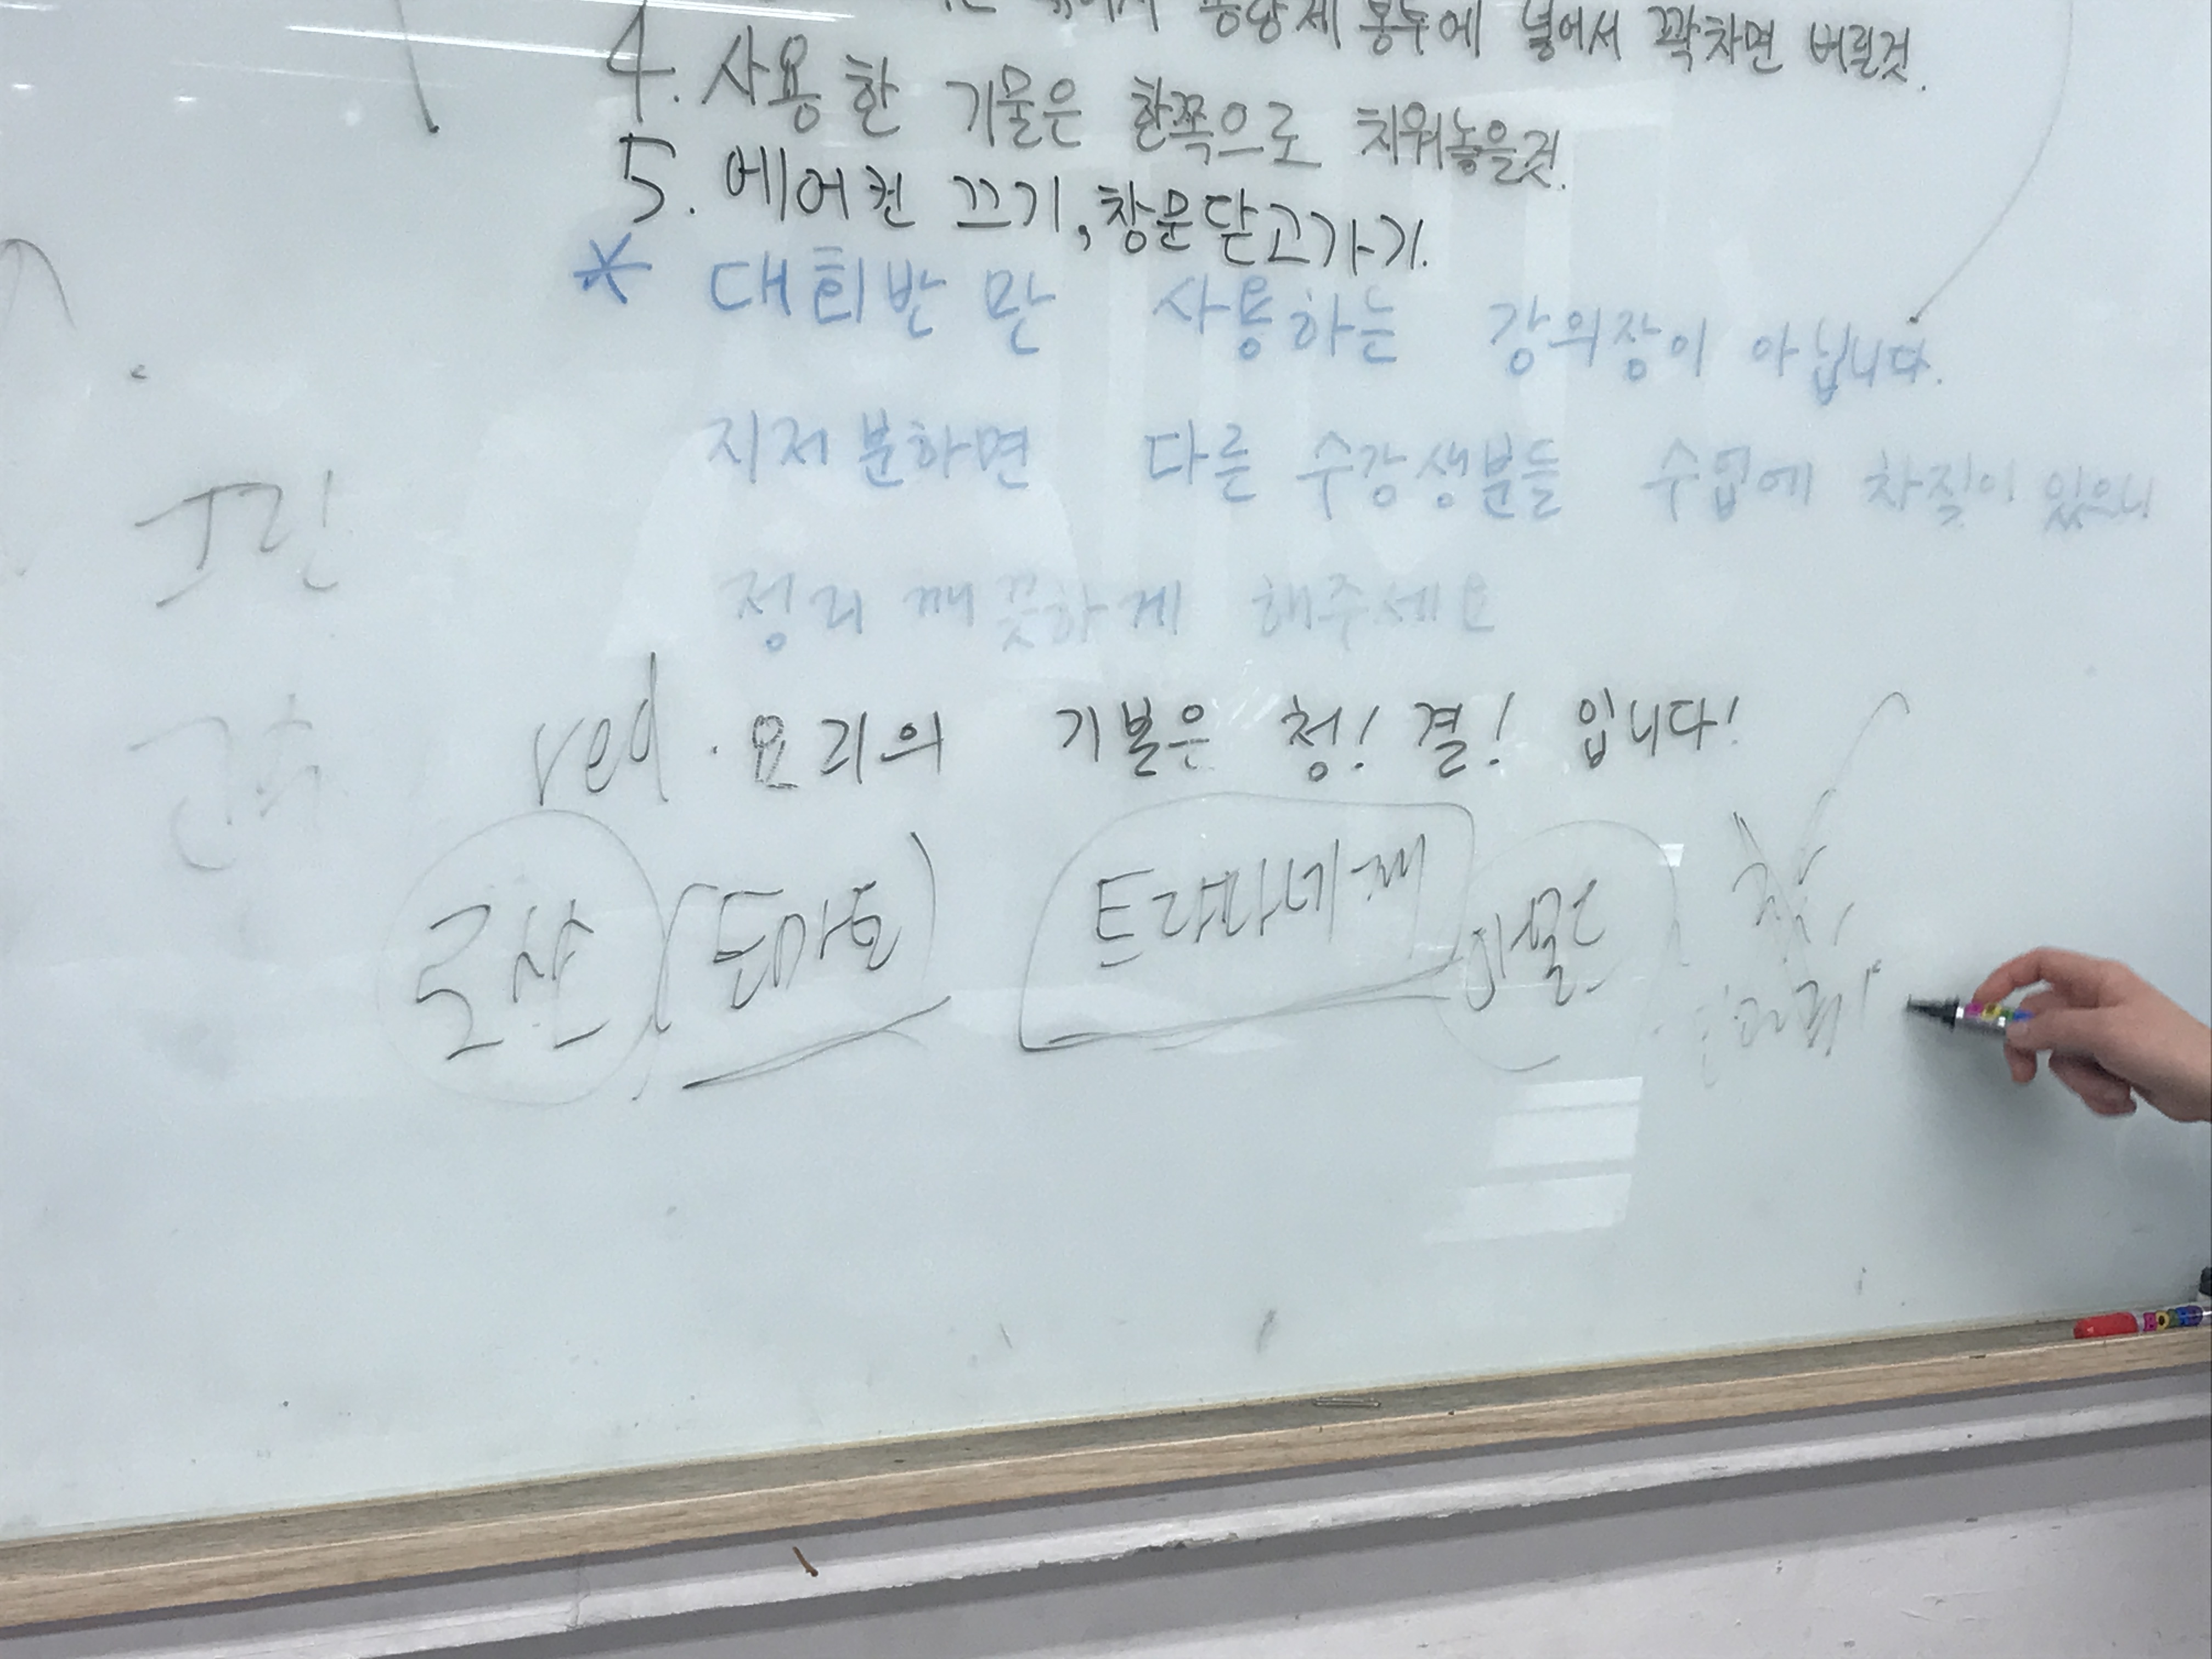 종량제 봉투에 넣어서 꽉차면 버릴것.
4. 사용한 기물은 한쪽으로 치워놓을것.
5. 에어컨 끄기, 창문닫고가기.
* 대회반만 사용하는 강의장이 아닙니다.
지저분하면 다른 수강생분들 수업에 차질이 있으니
정리 깨끗하게 해주세요
red · 요리의 기본은 청! 결! 입니다!
로산 (토마토) 트라파네제